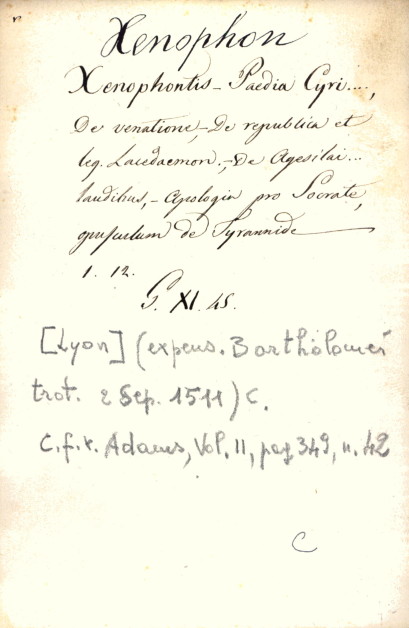 Xenophon
Xenophontis - Paedia Cyri....,
De venatione, - De republica et
leg. Lacedaemon., - De Agesilai...
laudibus, - Apologia pro Socrate,
opusculum de Tyrannide
1. 12.
G. XI. 45.
[Lyon] (expens. Bartholomei
trot. 2 Sep. 1511) C.
C.f.r. Adams, Vol. II, pag 349, n. 42
C